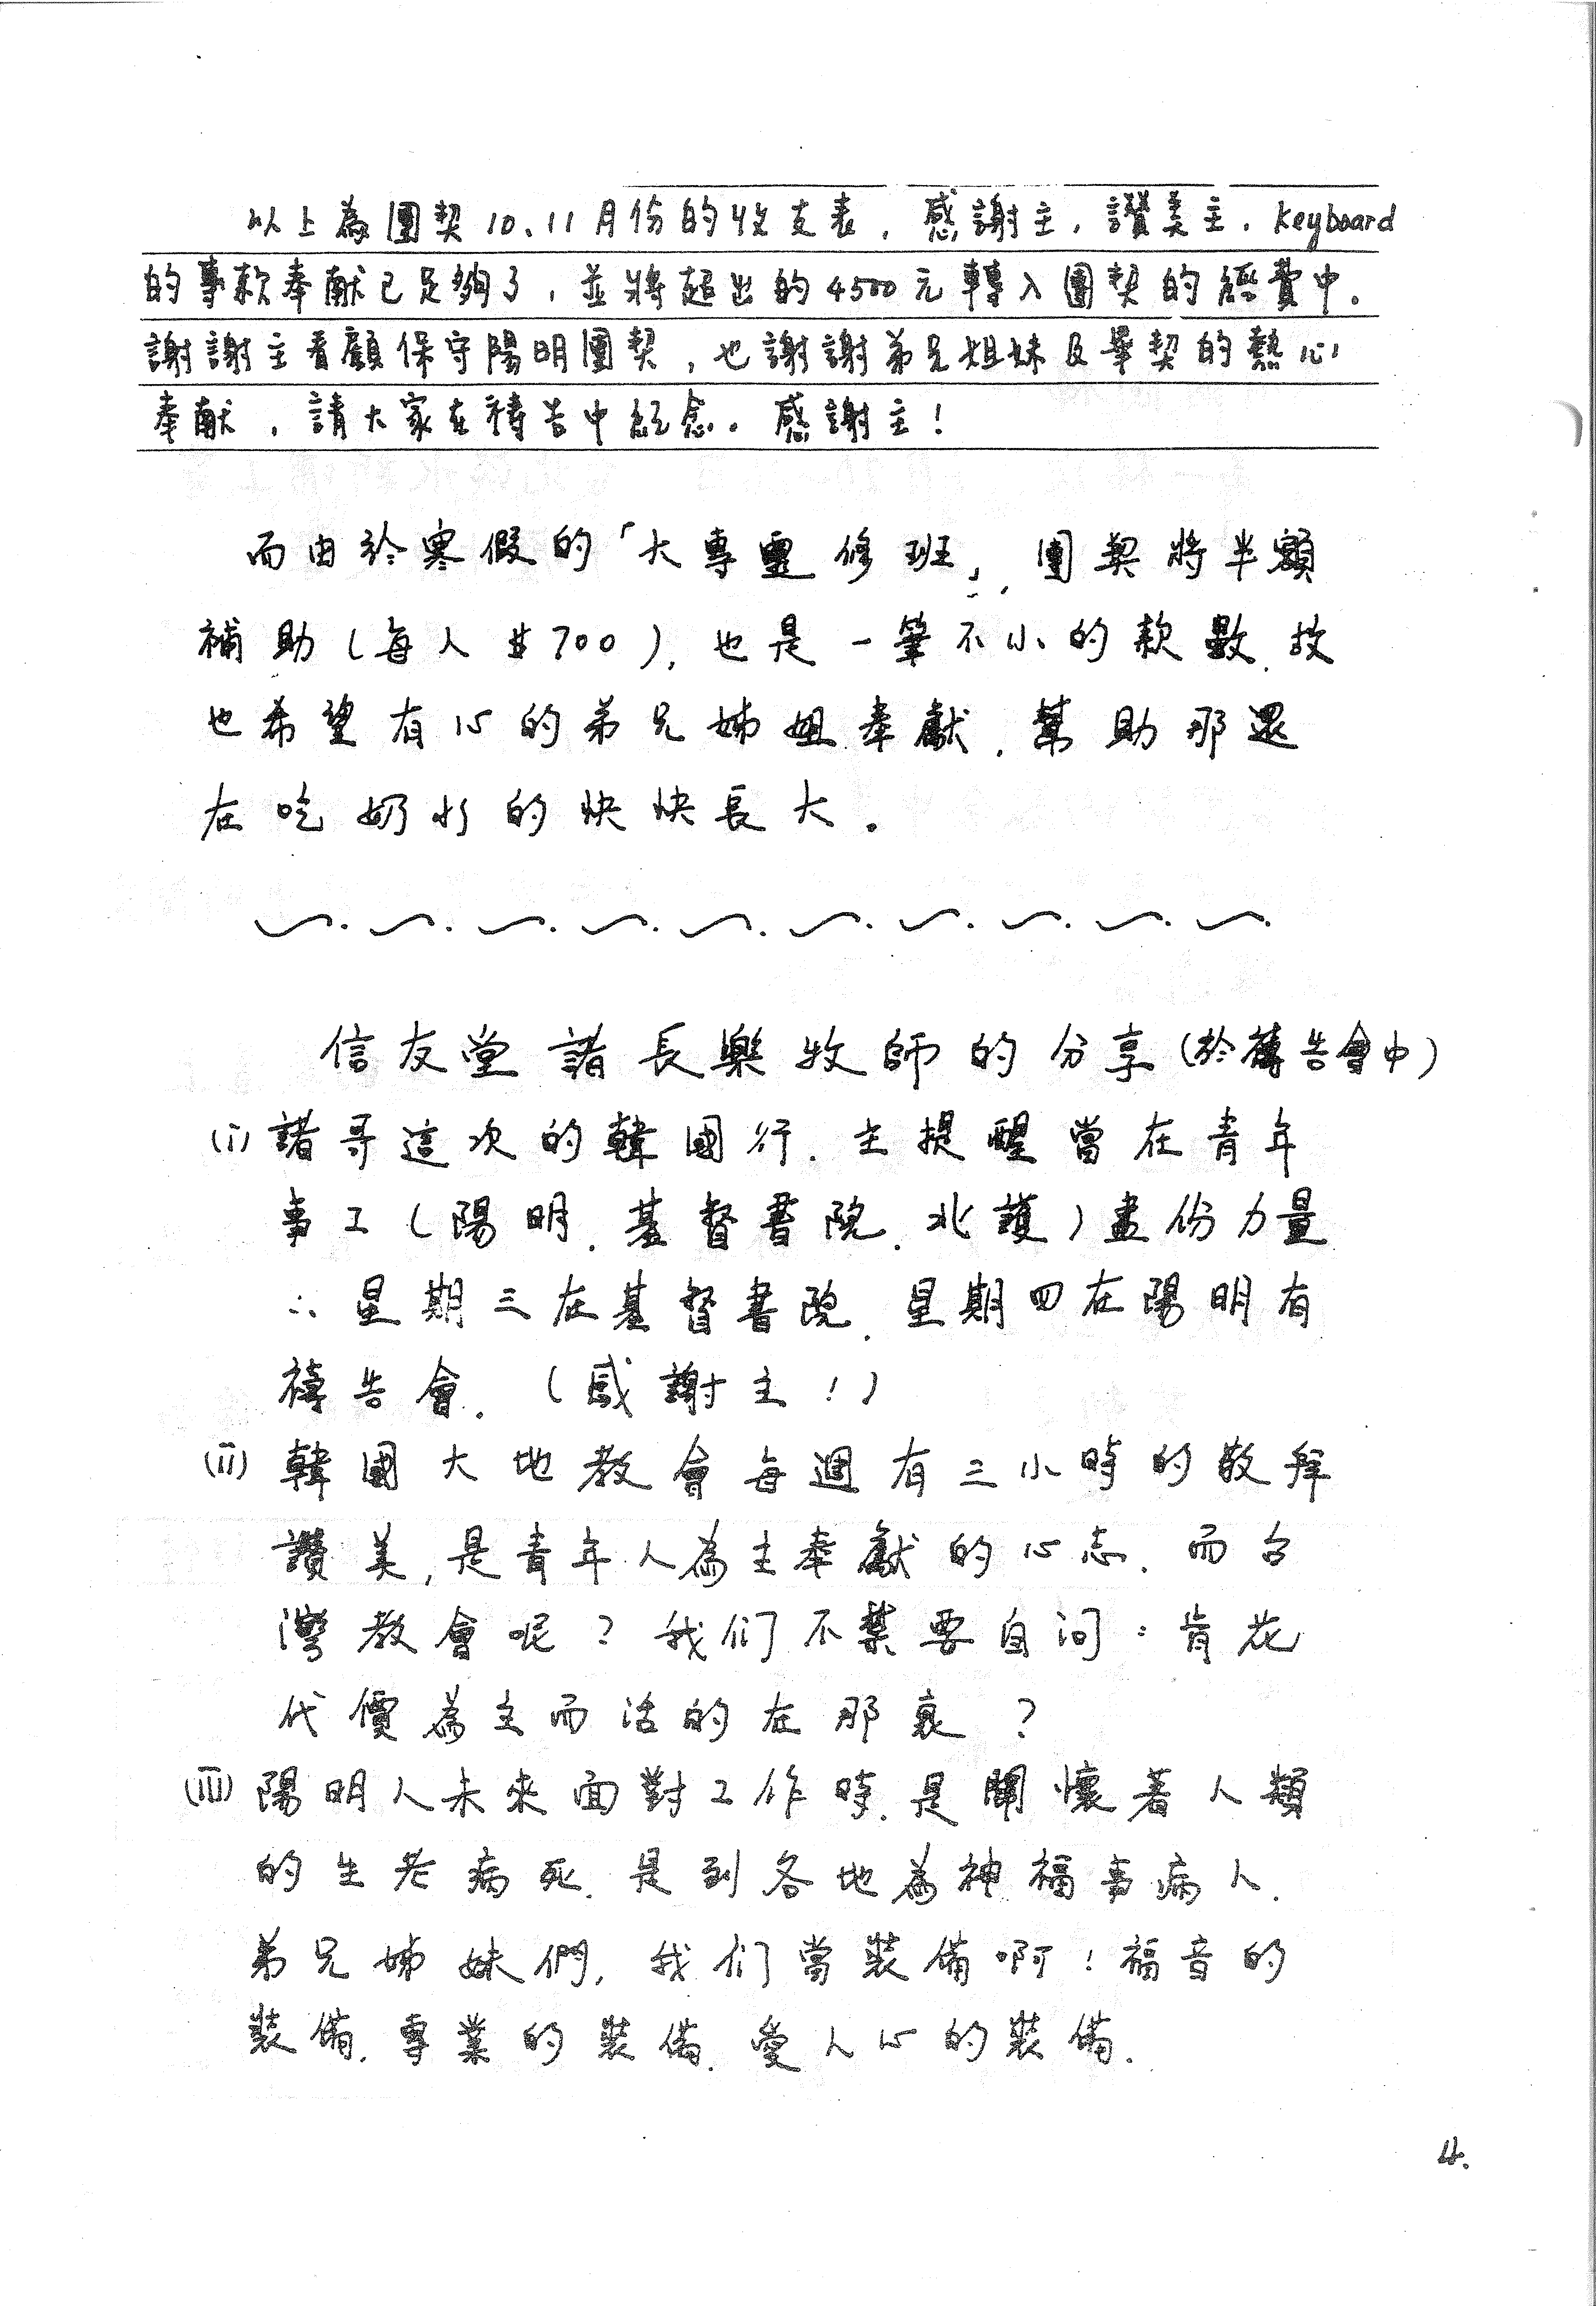 以上為團契10、11月份的收支表，感謝主，讚美主，keyboard
的專款奉献已足夠了，並將超出的4500元轉入團契的經費中。
謝謝主看顧保守陽明團契，也謝謝弟兄姐妹及畢契的熱心
奉献，請大家在禱告中紀念。感謝主！
而由於寒假的「大專靈修班」，團契將半額
補助(每人$700)，也是一筆不小的款數，故
也希望有心的弟兄姊姐奉獻，幫助那還
在吃奶水的快快長大。
信友堂諸長樂牧師的分享(於禱告會中)
(i)諸哥這次的韓國行，主提醒當在青年
事工(陽明、基督書院、北護)盡份力量
∴星期三在基督書院，星期四在陽明有
禱告會。(感謝主！)
(ii)韓國大地教會每週有三小時的敬拜
讚美，是青年人為主奉獻的心志，而台
灣教會呢？我们不禁要自问：肯花
代價為主而活的在那裏？
(iii)陽明人未來面對工作時，是關懷著人類
的生老病死，是到各地為神福事病人，
弟兄姊妹們，我们當裝備啊！福音的
裝備，專業的裝備，愛人心的裝備。
4.